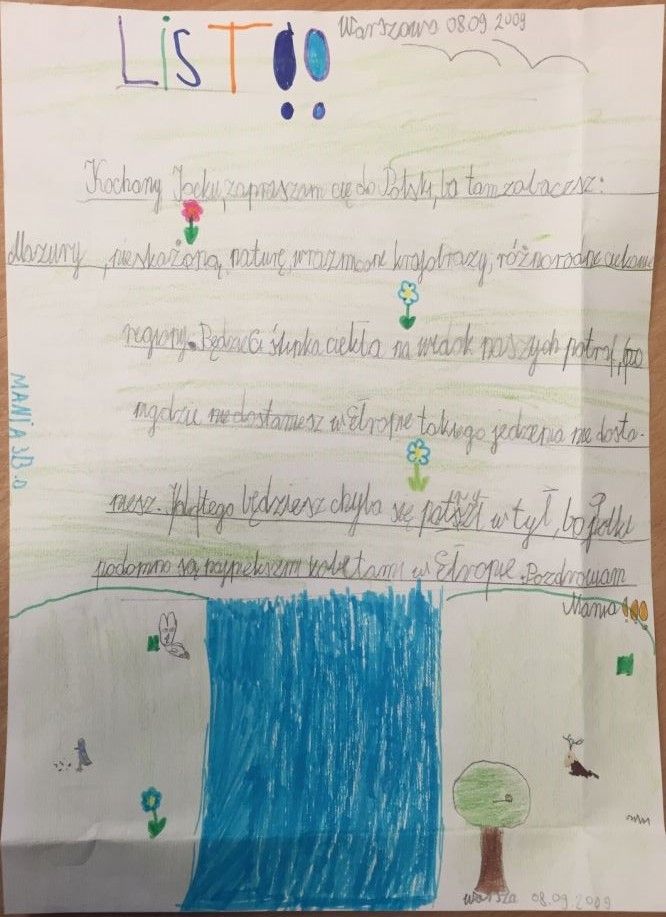 LiST!!
Warszawa 08.09 2009
Kochany Jacku, zapraszam cię do Polski, bo tam zobaczsz:
Mazury, nieskażoną naturę, wrazmoone krajobrazy, różnorodne ciekawe
regiony. Będzie Ci ślinka ciekła na widok naszych potraf, bo
nigdzie niedostaniesz w Ełropie takiego jedzenia nie dosta-
niesz. Jakbtego będziesz chyba się patszżł w tył, bo polki
podomno są najpiekszmi kobietami w Ełropie. Pozdrawiam
Mania!!!
MANIA 3B.
warsza 08.09.2009